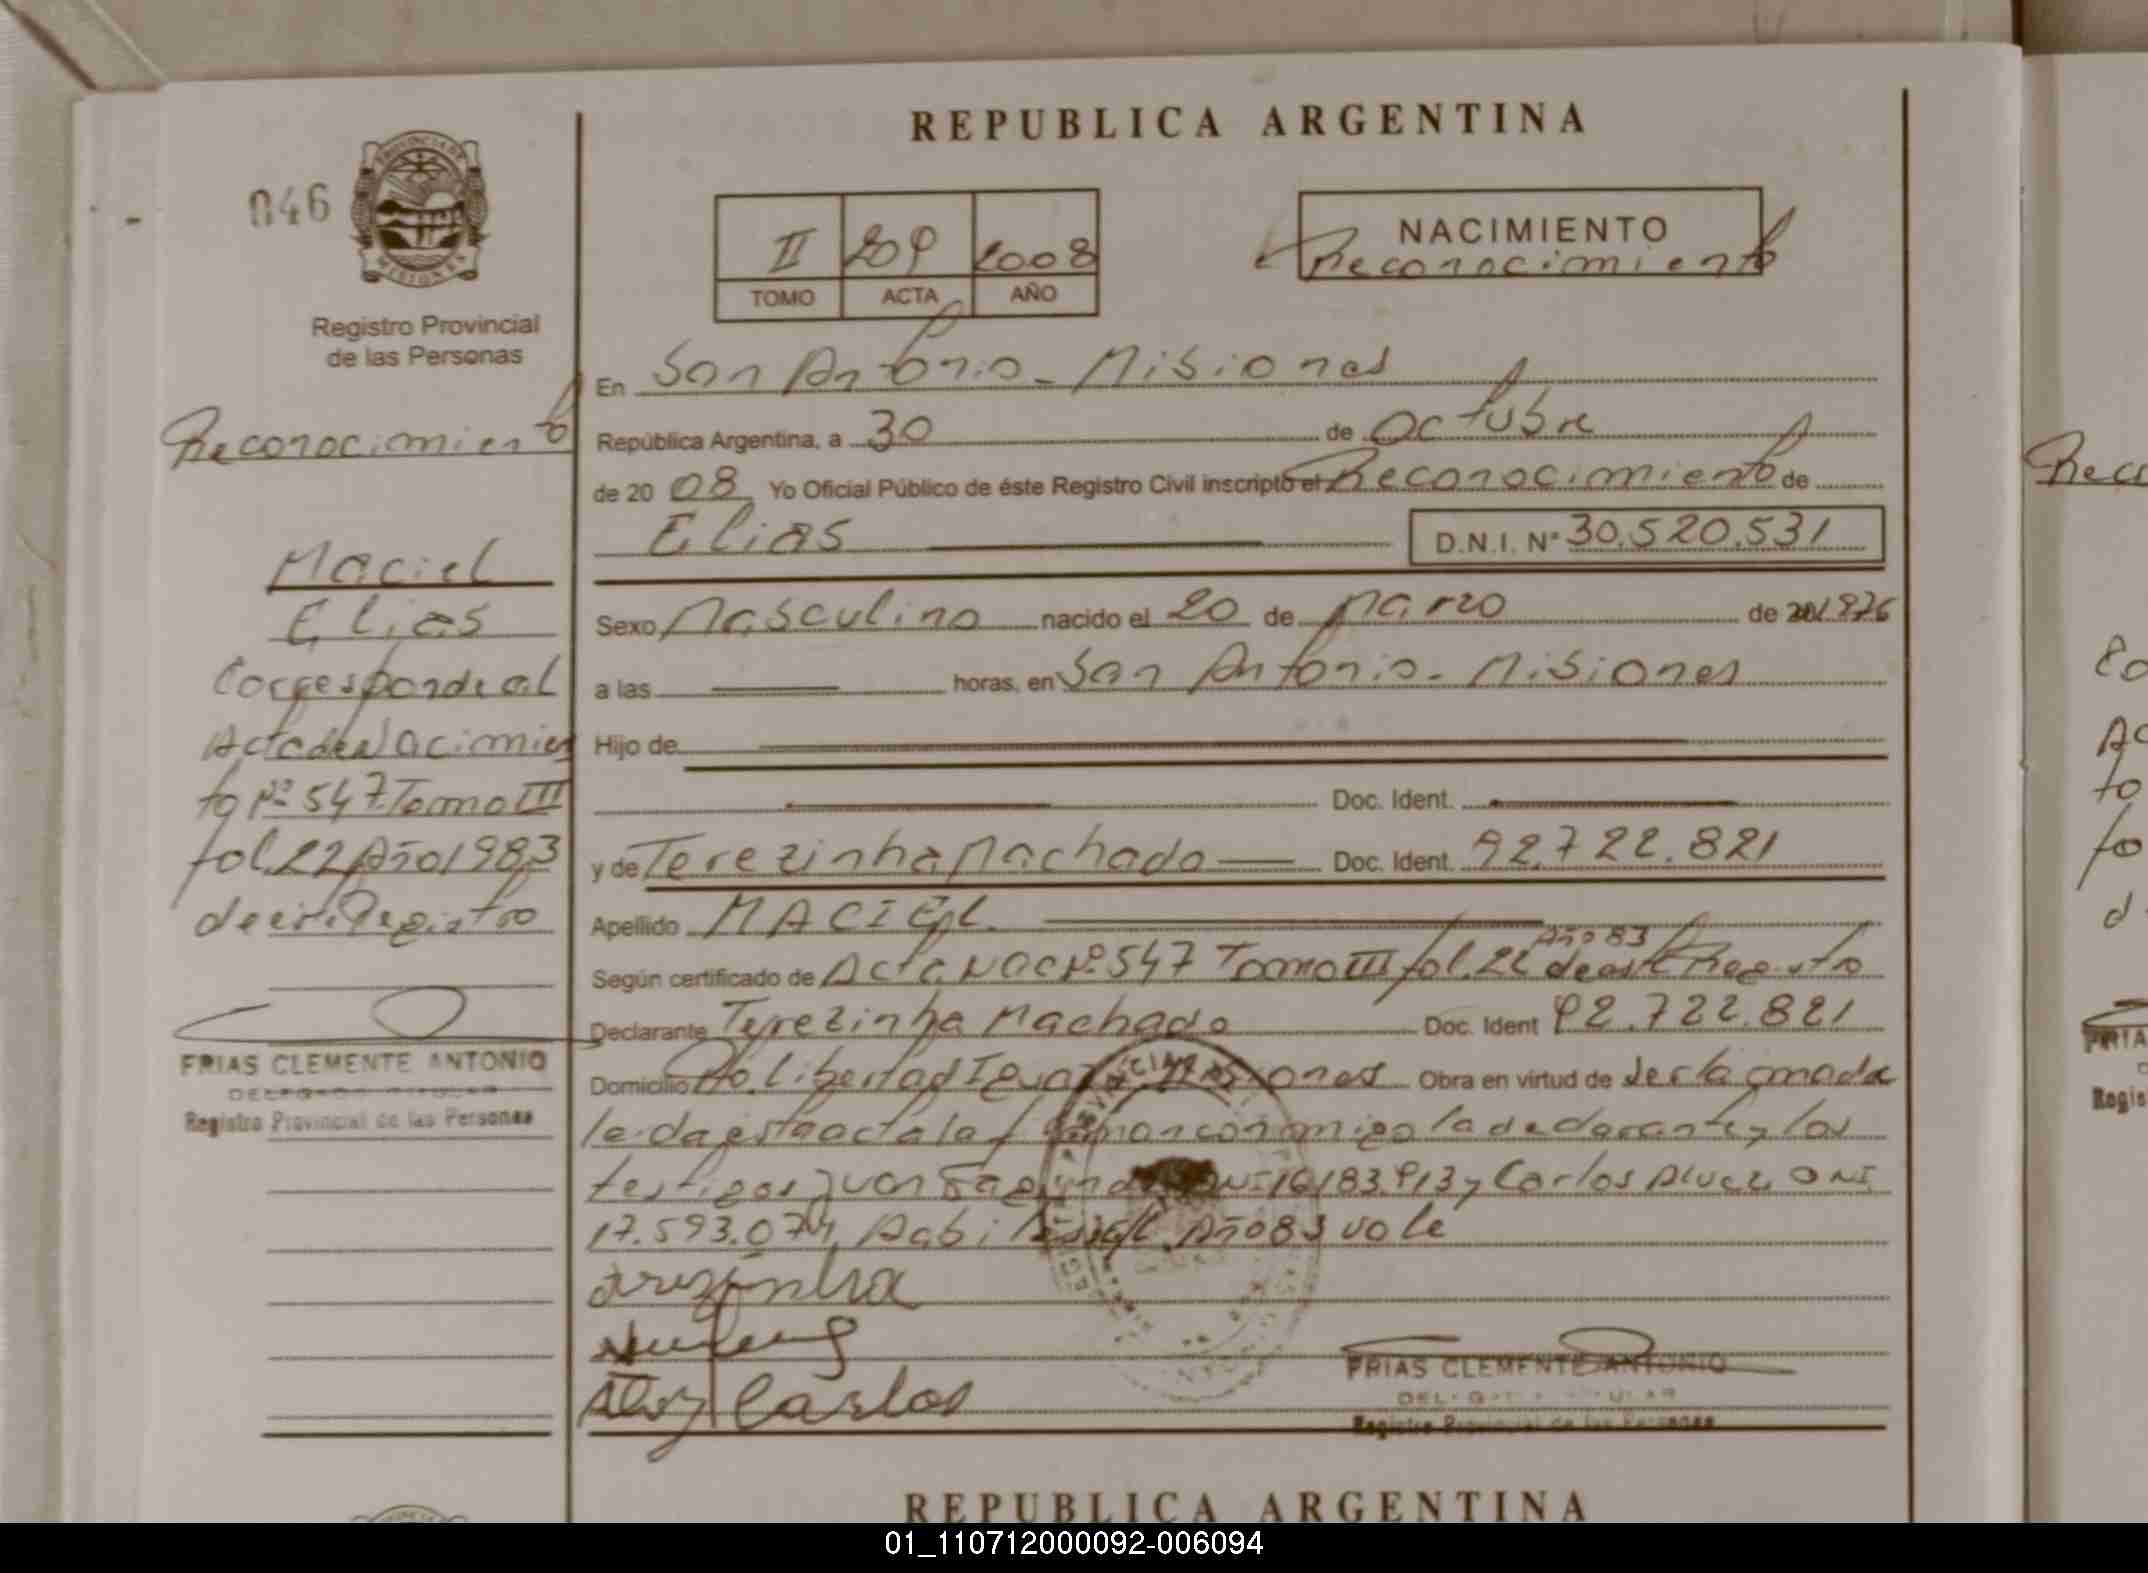 REPUBLICA ARGENTINA
046
PROVINCIA DE
MISIONES
Registro Provincial
de las Personas
II 209 2008
TOMO ACTA AÑO
NACIMIENTO
Reconocimiento
En San Antonio - Misiones
República Argentina, a 30 de Octubre
de 20 08 Yo Oficial Público de éste Registro Civil inscripto el Reconocimiento de
Elias D.N.I. Nº 30.520.531
Sexo Masculino nacido el 20 de Marzo de 1976
a las horas, en San Antonio - Misiones
Hijo de
Doc. Ident.
y de Terezinha Machado Doc. Ident. 92.722.821
Apellido MACIEL
Según certificado de Acta Nac Nº 547 Tomo III fol. 22 Año 83 de este Registro
Declarante Terezinha Machado Doc. Ident 92.722.821
Domicilio Pto. Libertad Obra en virtud de ser la
leida esta acta la conmigo la declarante y los
testigos Juan y Carlos
17.593.074 Año 83 vale
Carlos
FRIAS CLEMENTE ANTONIO
Registro Provincial de las Personas
Reconocimiento
Maciel
Elias
Corresponde al
Acta de Nacimien
to Nº 547 Tomo III
fol. 22 Año 1983
de este Registro
FRIAS CLEMENTE ANTONIO
DELEGADO TITULAR
Registro Provincial de las Personas
REPUBLICA ARGENTINA
01_110712000092-006094